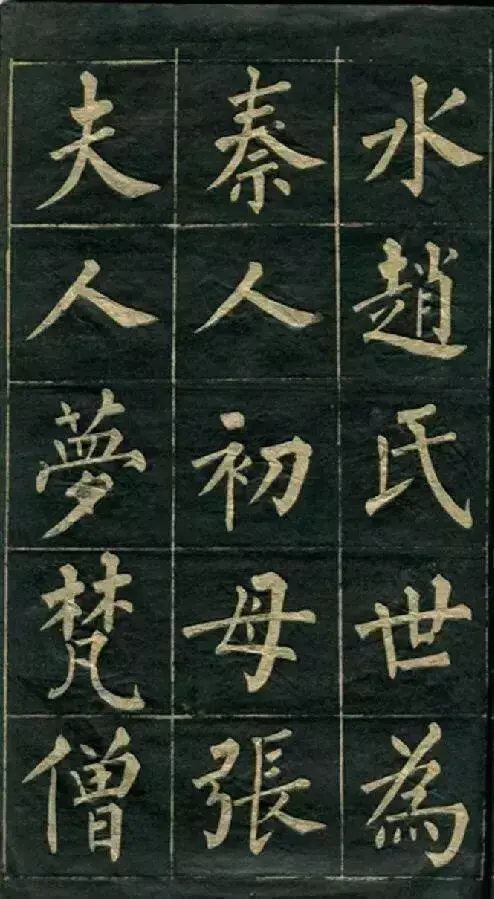 水趙氏世為
秦人初母張
夫人夢梵僧